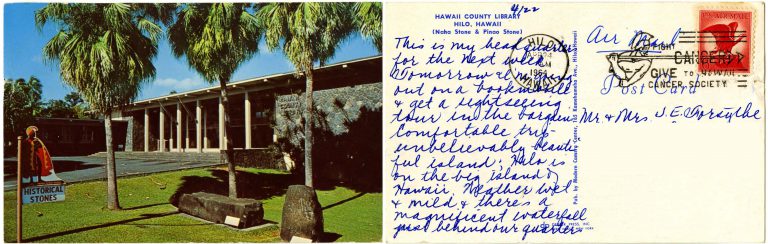 HISTORICAL
STONES
4/22
HAWAII COUNTY LIBRARY
HILO, HAWAII
(Naha Stone & Pinao Stone)
This is my headquarters
for the next week.
Tomorrow I
out on a bookmobile
& get a sightseeing
tour in the bargain.
Comfortable trip -
unbelievably beauti-
ful island; Hilo is
on the big island of
Hawaii. Weather wet
& mild & there's a
magnificent waterfall
just behind our quarters
HILO
AM
HAWAII
FIGHT
CANCER
GIVE TO HAWAII
CANCER SOCIETY
U.S. AIR MAIL
Air Mail
Post Card
Mr. & Mrs. J. E. Forsythe